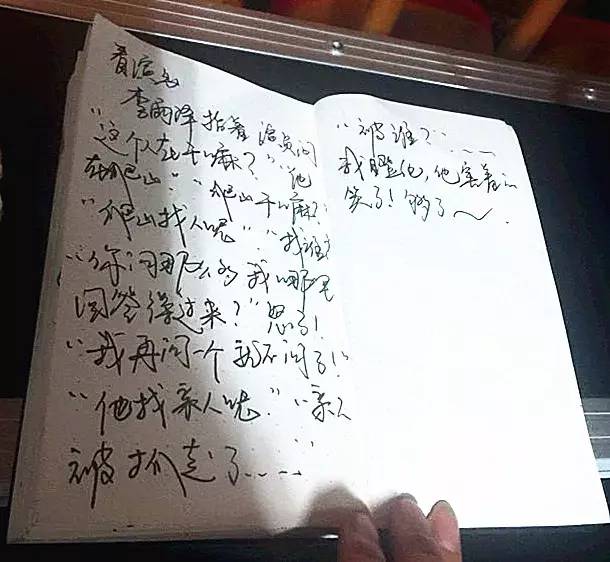 看演出
李雨泽指着演员问
"这个人在干嘛?""他
在爬山""爬山干嘛?
"爬山找人呢""找谁?
"你问那么多我哪里
回答得过来?"怒了!
"我再问一个就不问了!"
"他找亲人呢""亲人
被抓走了……"
"被谁?"……
我瞪他,他害羞
笑了!够了~.